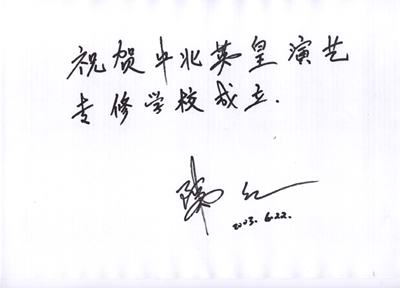 祝贺中北英皇演艺
专修学校成立.
陈红
2003. 6.22.